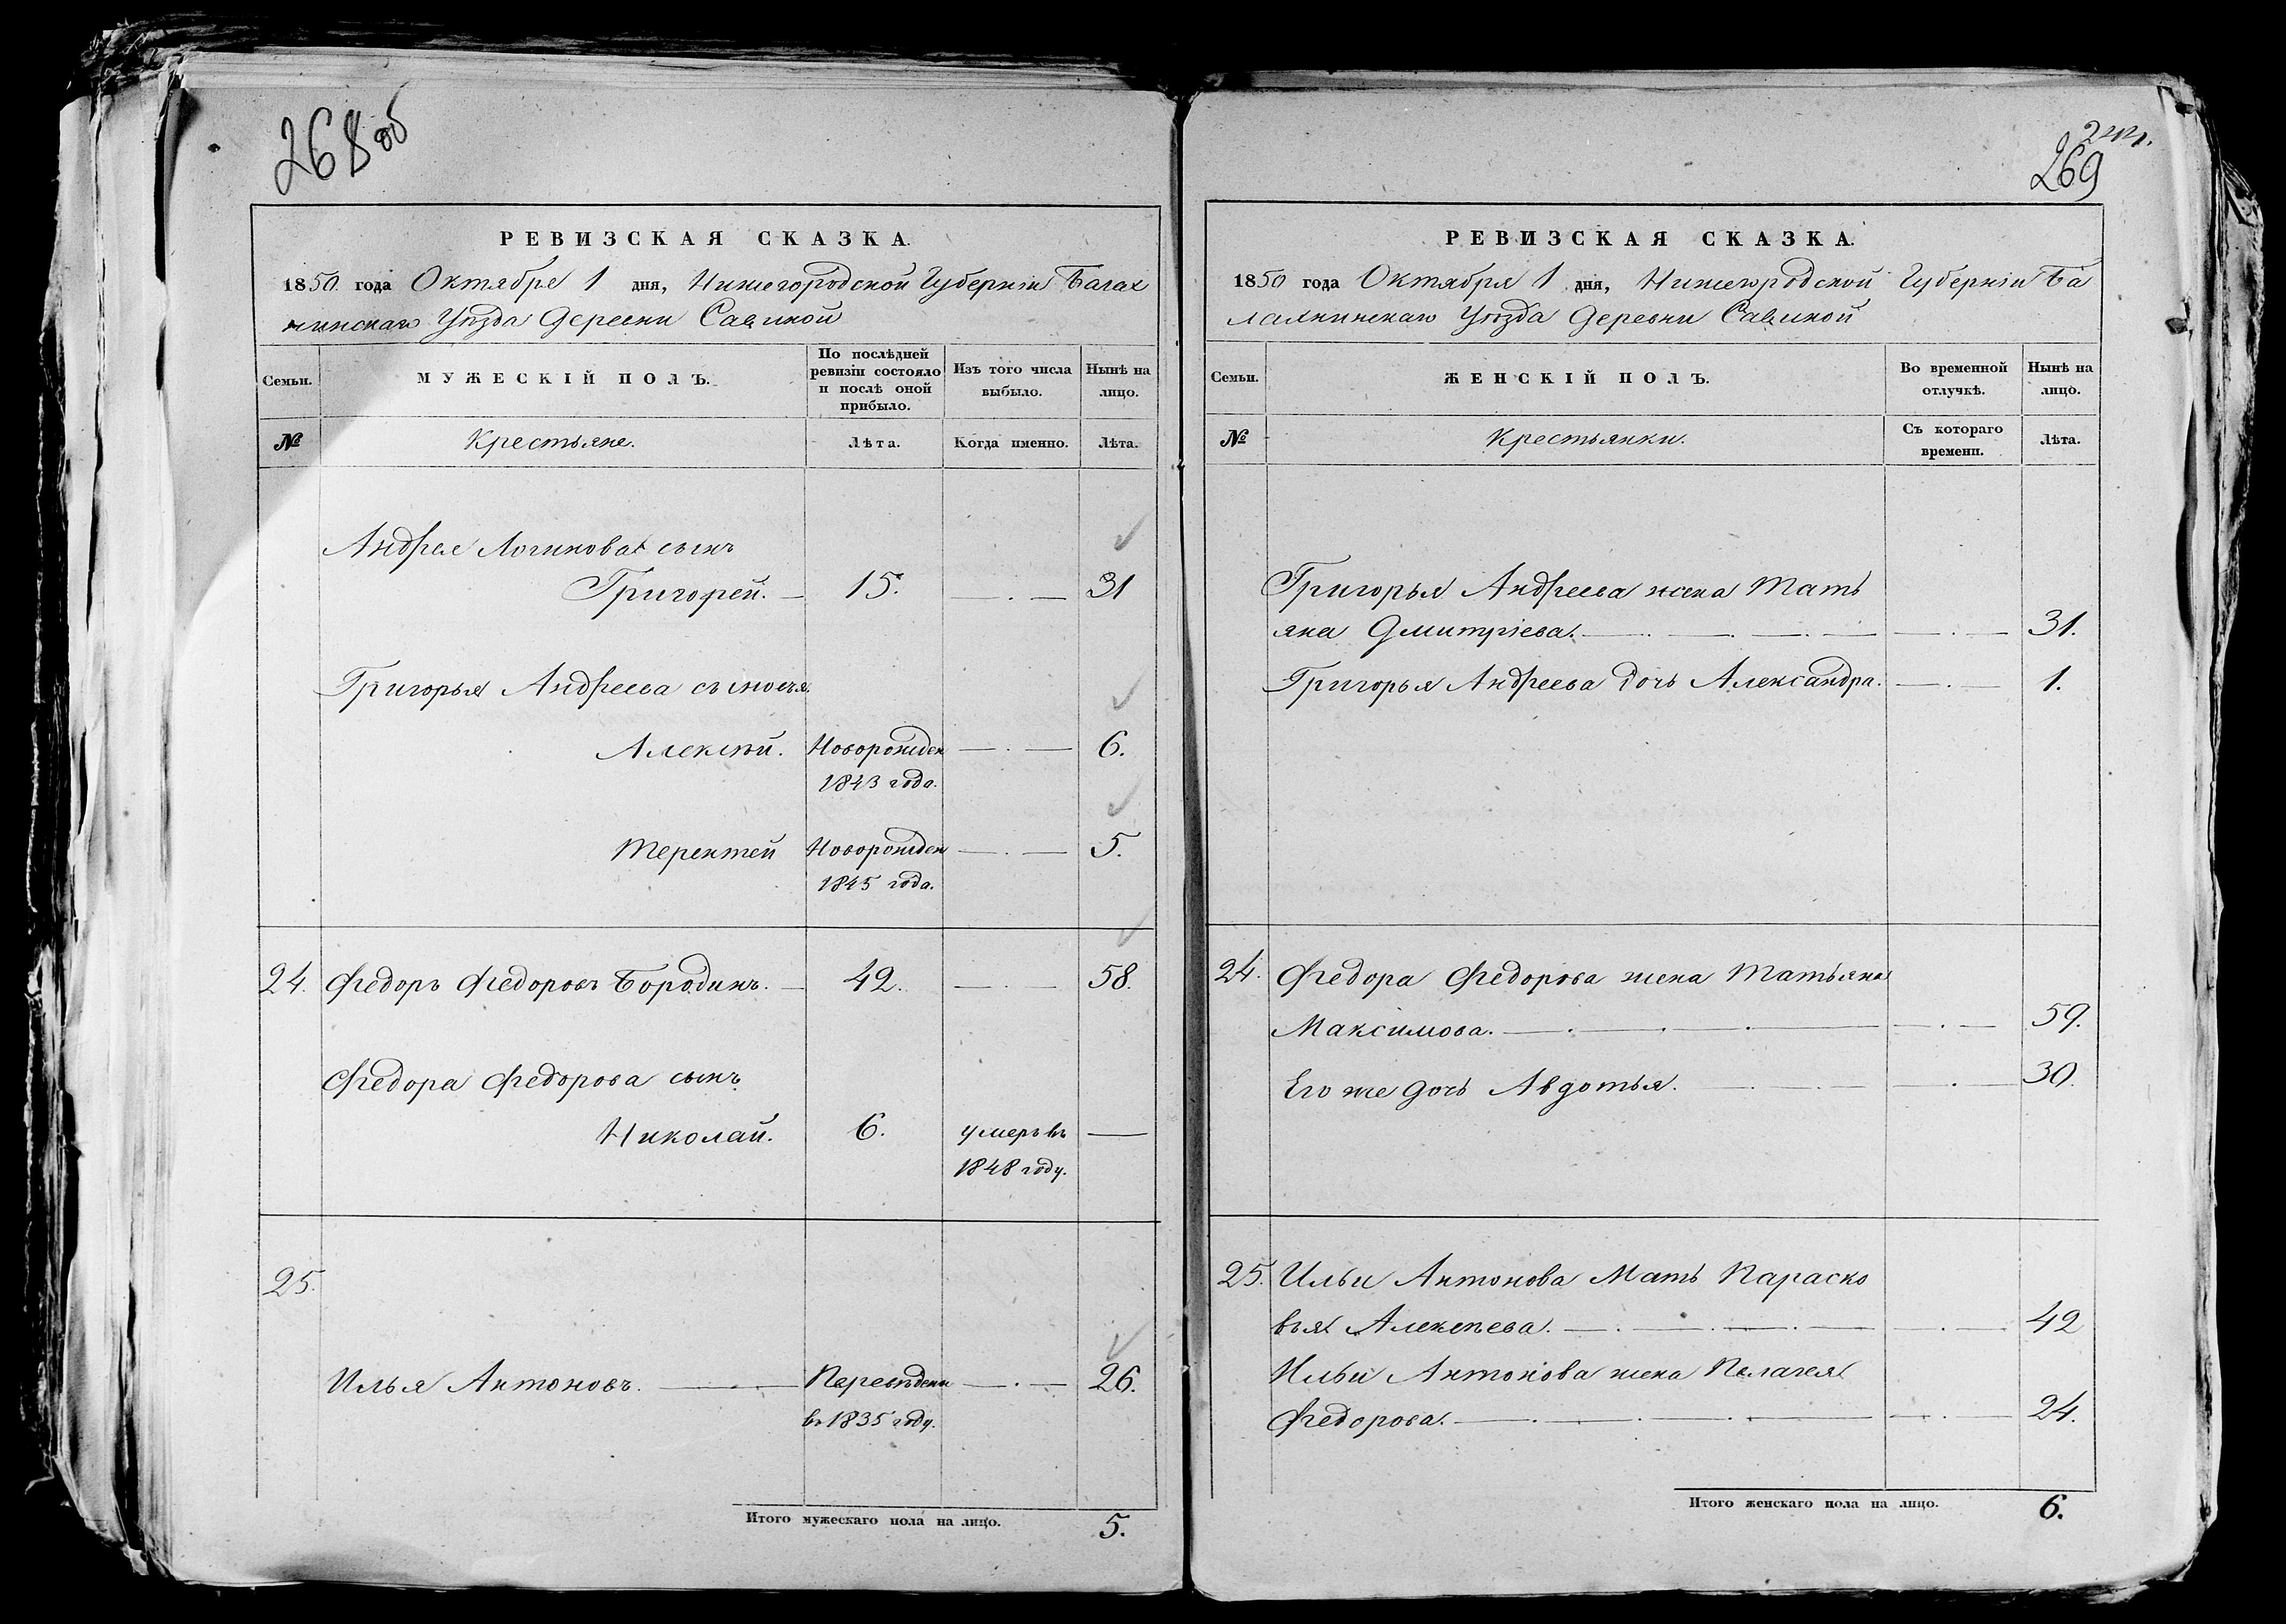 268 об
РЕВИЗСКАЯ СКАЗКА.
1850. года Октября 1 дня, Нижегородской Губерніи Балах
нинскаго Уѣзда Деревни Савиной
Семьи.
МУЖЕСКІЙ ПОЛЪ.
По послѣдней
ревизіи состояло
и послѣ оной
прибыло.
Изъ того числа
выбыло.
Нынѣ на
лицо.
№
Крестьяне.
Лѣта.
Когда именно.
Лѣта.
Андрея Логинова сынъ
Григорей. — 15. —.— 31
Григорья Андреева сыновья.
Алексѣй. Новорожден —.— 6.
1843 года.
Терентей Новорожден —.— 5.
1845 года.
24. Федоръ Федоровъ Бородинъ. — 42. —.— 58.
Федора Федорова сынъ
Николай. 6. умеръ въ —
1848 году.
25.
Илья Антоновъ. — Переведенъ —.— 26.
въ 1835 году.
Итого мужескаго пола на лицо. 5.
269
РЕВИЗСКАЯ СКАЗКА.
1850 года Октября 1 дня, Нижегородской Губерніи Ба
лахнинскаго Уѣзда Деревни Савиной
Семьи.
ЖЕНСКІЙ ПОЛЪ.
Во временной
отлучкѣ.
Нынѣ на
лицо.
№
Крестьянки.
Съ котораго
времени.
Лѣта.
Григорья Андреева жена Тать
яна Дмитріева. — 31.
Григорья Андреева дочь Александра. —.— 1.
24. Федора Федорова жена Татьяна
Максимова. — 59.
Его же дочь Авдотья. — 30.
25. Ильи Антонова Мать Параско
вья Алексѣева. — 42
Ильи Антонова жена Пелагея
Федорова. — 24.
Итого женскаго пола на лицо. 6.